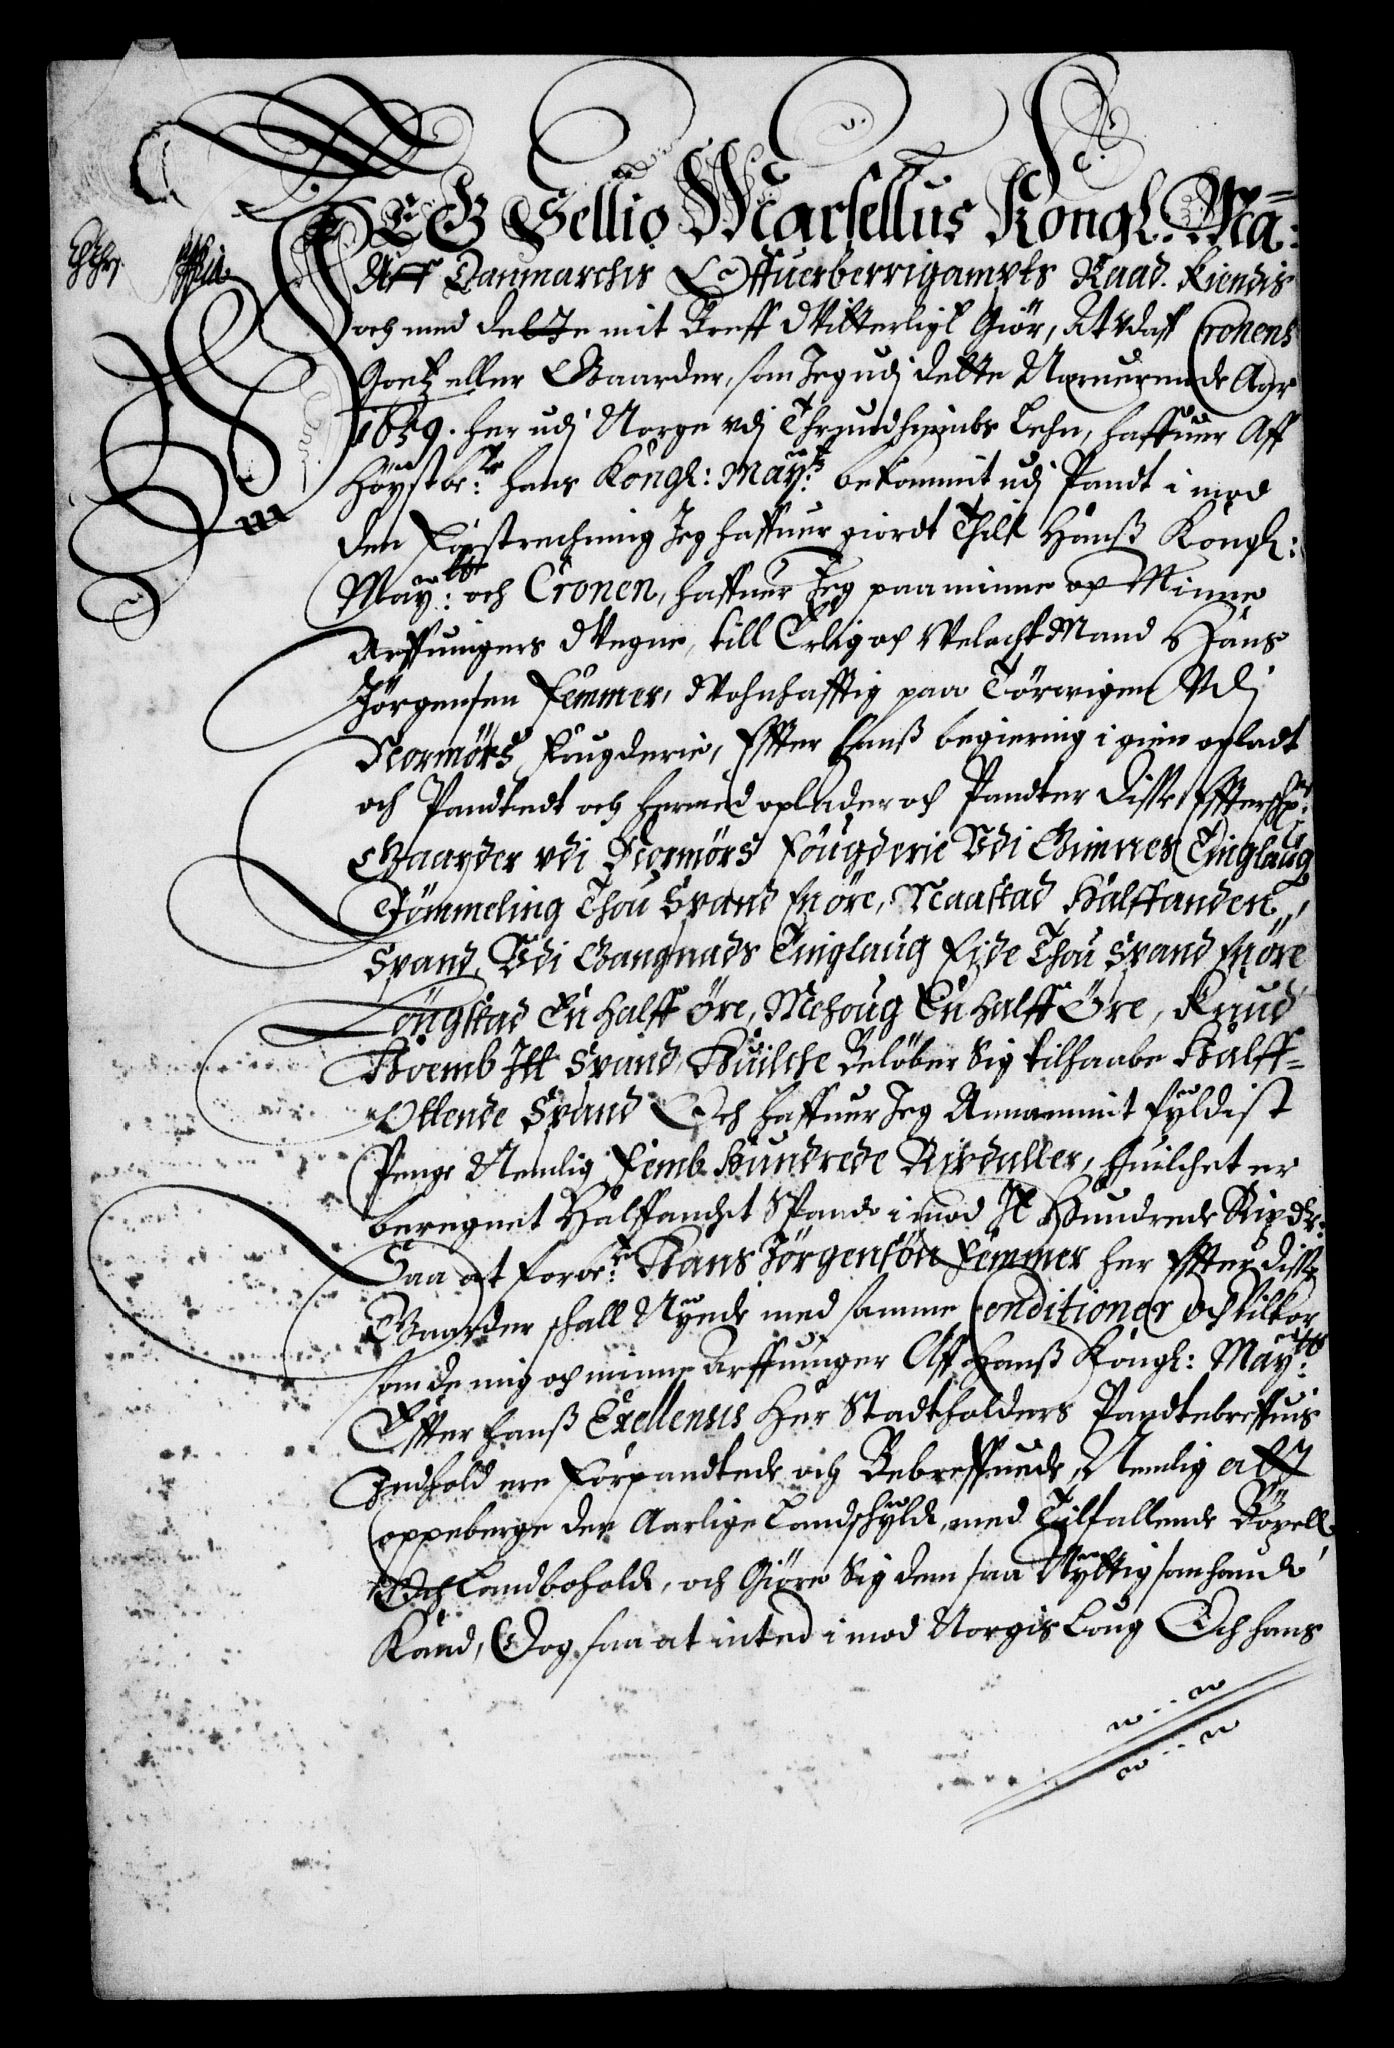 JEG Sellio Marsellus Kongl. Ma:
Aff Danmarchis Offuerberrigampts Raad. Kiendis
och med dette mit Breff Witterligt Giör, At vdaff Cronens
Goetz eller Gaarder, som Jeg udj dette Neruerende Aar
1659. her udj Norge vdj Thrundhiembs Lehn, haffuer Aff
Höystbe:te hans Kongl: May:tz bekommit udj Pandt i mod
den Forstrechning Jeg haffuer giordt Thill Hanß Kongl:
May:tte och Cronen, haffuer Jeg paa minne oc Minne
Arffuingers Vegne, till Erlig oc Welacht Mand Hans
Jörgensen Femmer, Wohnhafftig paa Törwigen Vdj
Normörs Fougderie, Effter hanß begiering i gien opladt
och Pandtedt och hermed oplader och Pandter Disse Effterschr:ne
Gaarder vdi Normörs Fougderie Vdi Gimnes Tinglaug
Tömmeling Thou Spand En öre, Naastad Halffanden
Spand, Vdi Gangnads Tinglaug Eide Thou Spand En öre
Lougstad En halff Öre, Mehoug En Halff Öre, Knud
Hoemb Itt Spand, Huilche Belöber Sig tilhaabe Halff-
Ottende Spand Och haffuer Jeg Annammit fyldist
Penge Nemlig Femb Hundrede Rixdaller, huilchet er
beregnet Halffandet Spand i mod It Hundrede Rixdr:
Saa at forbe:te Hans Jörgensön Femmer her Effter disse
Gaarder schall Nyde med samme Conditioner och Vilkor
som de mig oc minne Arffuinger Aff Hanß Kongl: May:tt
Effter hanß Exellensis Her Stadtholders Pandtebreffuis
Indhold ere Forpandtede och Bebreffuede, Nemlig at
oppeberge den Aarlige Landschyld, med Tilfallende Böxell
Och Landbohold, och Giöre Sig dem saa Nyttig som hand
Kand, Dog saa at inted i mod Norgis Loug Och hans